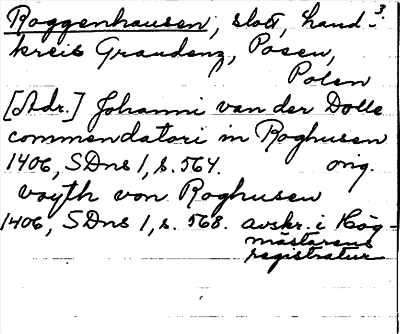 Roggenhausen, slott, Land-
kreis Graudenz, Posen,
Polen
[Adr.] Johanni van der Dolle
commendatori in Roghusen
1406, SDns 1, s. 564. orig.
voyth von Roghusen
1406, SDns 1, s. 568. avskr. i Hög-
mästarens
registratur